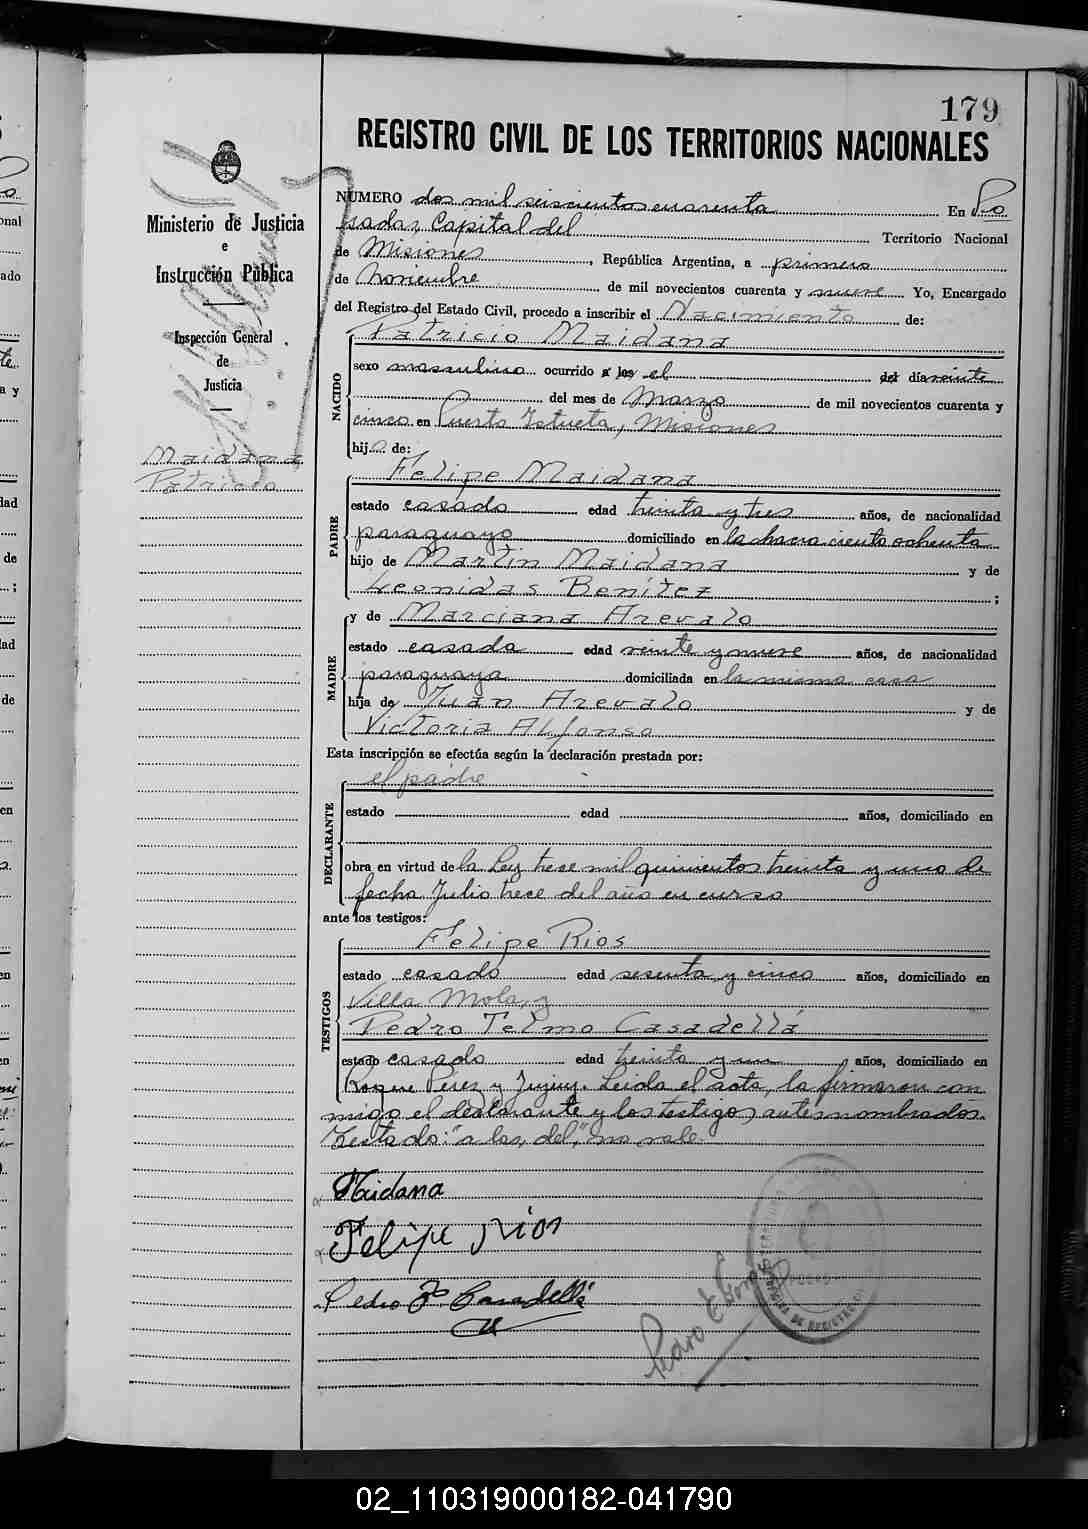 179
REGISTRO CIVIL DE LOS TERRITORIOS NACIONALES
Ministerio de Justicia
e
Instrucción Pública
Inspección General
de
Justicia
Maidana
Patricio
NUMERO dos mil seiscientos cuarenta En Po
sadas, Capital del Territorio Nacional
de Misiones, República Argentina, a primero
de noviembre de mil novecientos cuarenta y nueve Yo, Encargado
del Registro del Estado Civil, procedo a inscribir el Nacimiento de:
Patricio Maidana
NACIDO
sexo masculino ocurrido a los el del día veinte
del mes de Marzo de mil novecientos cuarenta y
cinco en Puerto Istueta, Misiones
hijo de:
Felipe Maidana
PADRE
estado casado edad treinta y tres años, de nacionalidad
paraguayo domiciliado en la chacra ciento ochenta
hijo de Martin Maidana y de
Leonidas Benítez ;
y de Marciana Arevalo
MADRE
estado casada edad veinte y nueve años, de nacionalidad
paraguaya domiciliada en la misma casa
hija de Juan Arevalo y de
Victoria Alfonso
Esta inscripción se efectúa según la declaración prestada por:
el padre
DECLARANTE
estado edad años, domiciliado en
obra en virtud de la Ley trece mil quinientos treinta y uno de
fecha Julio trece del año en curso
ante los testigos:
Felipe Rios
TESTIGOS
estado casado edad sesenta y cinco años, domiciliado en
Villa Mola, y
Pedro Telmo Casadellá
estado casado edad treinta y un años, domiciliado en
Roque Pérez y Jujuy. Leida el acta, la firmaron con
migo el declarante y los testigos antes nombrados.
Testado: "a los, del," no vale
Maidana
Felipe Rios
Pedro T. Casadellá
Pedro E
02_110319000182-041790